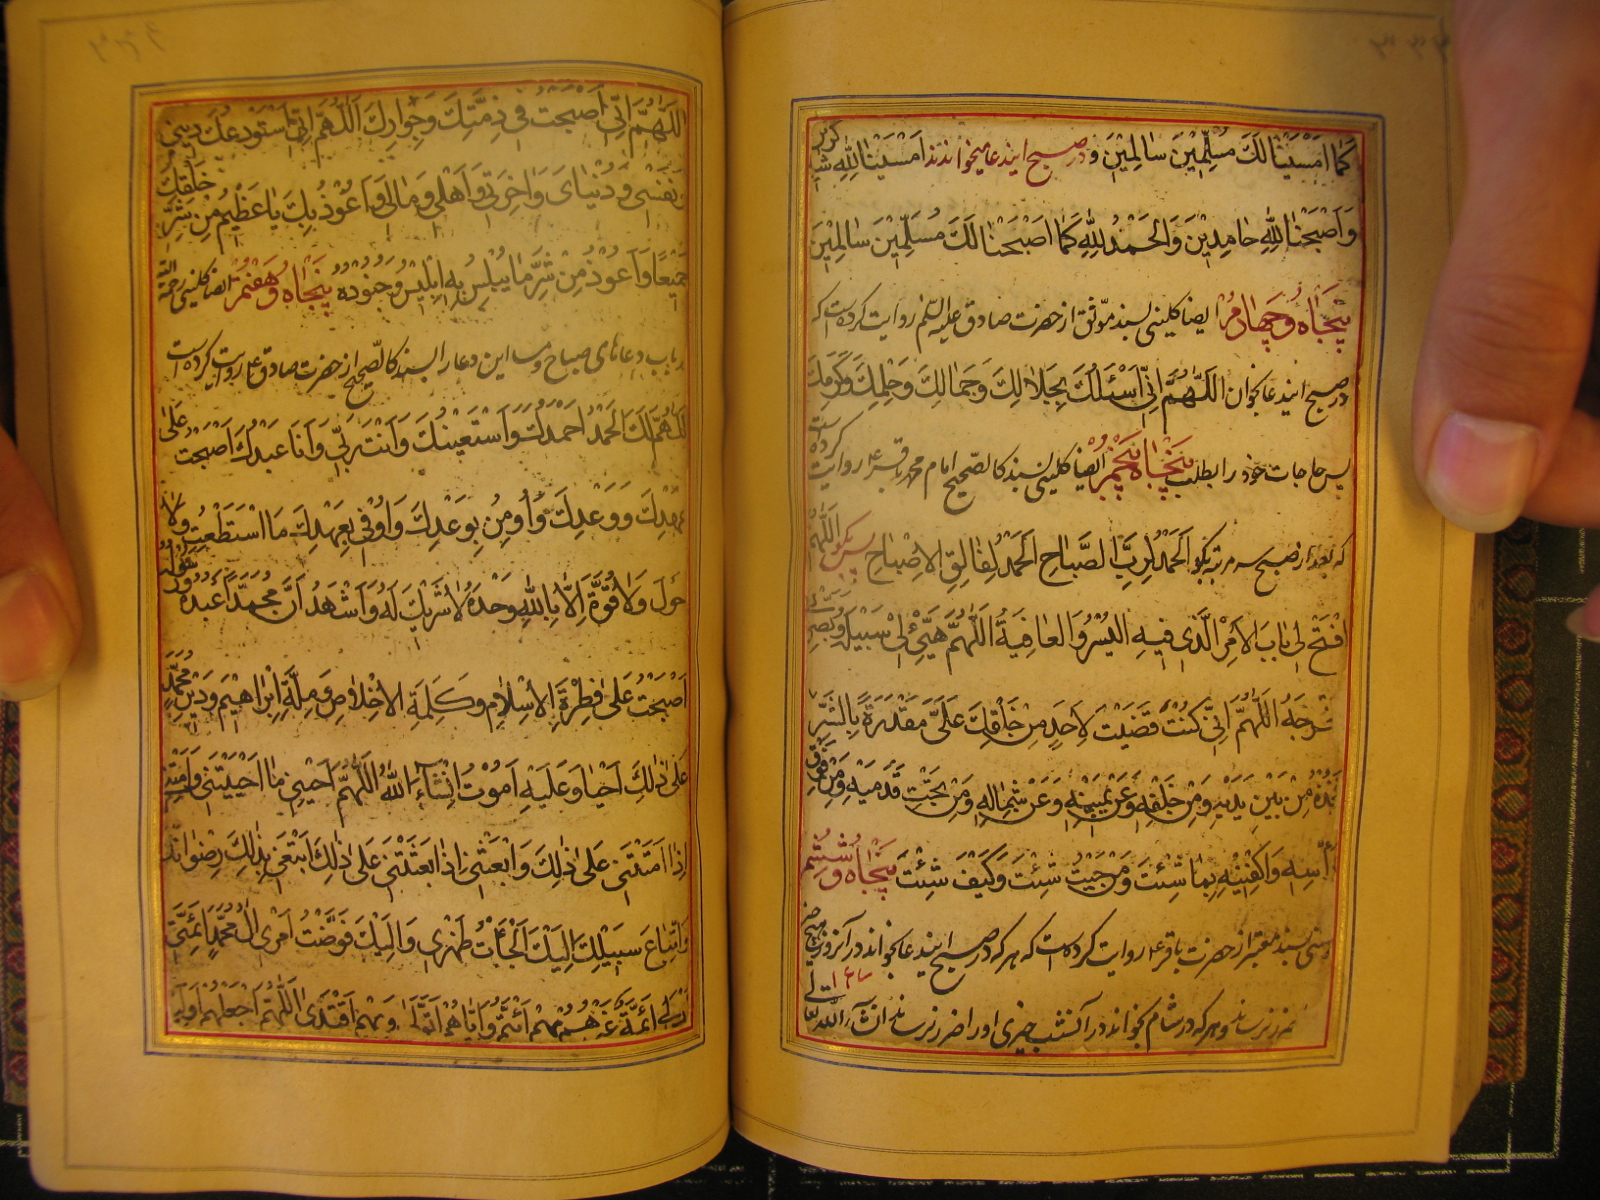 كَما اَمْسَيْنا لَكَ مُسْلِمِيْنَ سالِمِيْنَ و در صبح ایندعا میخوانند اَمْسَيْنا لِلّهِ شاكرين
وَاَصْبَحْنا لِلّهِ حامِدِيْنَ وَالحَمْدُ لِلّهِ كَما اَصْبَحْنا لَكَ مُسْلِمِيْنَ سالِمِيْنَ
پنجاه و چهارم ایضا کلینی بسند موّثق از حضرت صادق علیه السّلم روایت کرده است که
در صبح ایندعا بخوان اَللّهُمَّ اِنّي اَسْئَلُكَ بِجَلالِكَ وَجَمالِكَ وَحِلْمِكَ وَكَرَمِكَ
پس حاجات خود را بطلب پنجاه پنجم ایضا کلینی بسند کالصّحیح امام محمد باقر ع روایت کرده است
که بعد از صبح سه مرتبه بکو اَلحَمْدُ لِرَبِّ الصَّباحِ اَلحَمْدُ لِفالِقِ الاِصْباحِ پس بکو اَللّهُمَّ
افْتَحْ لي بابَ الاَمْرِ الَّذي فيهِ اليُسْرُ وَالعافِيَةُ اَللّهُمَّ هَيِّئْ لي سَبيلَهُ وَبَصِّرْني
مَخْرَجَهُ اَللّهُمَّ اِنْ كُنْتَ قَضَيْتَ لِاَحَدٍ مِنْ خَلْقِكَ عَلَيَّ مَقْدُرَةً بِالشَّرِّ
فَخُذْهُ مِنْ بَيْنِ يَدَيْهِ وَمِنْ خَلْفِهِ وَعَنْ يَمينِهِ وَعَنْ شِمالِهِ وَمِنْ تَحْتِ قَدَمَيْهِ وَمِنْ فَوْقِ
رَأْسِهِ وَاكْفِنيهِ بِما شِئْتَ وَمِنْ حَيْثُ شِئْتَ وَكَيْفَ شِئْتَ پنجاه و ششم
بسند معتبر از حضرت باقر ع روایت کرده است که هر که در صبح ایندعا بخواند در آنروز
ضرر نرساند و هر که در شام بخواند در آنشب چیزی او را ضرر نرساند انشاء اللّه تعالی
اَللّهُمَّ اِنّي اَصْبَحْتُ في ذِمَّتِكَ وَجِوارِكَ اَللّهُمَّ اِنّي اَسْتَوْدِعُكَ ديني
وَنَفْسي وَدُنْيايَ وَاخِرَتي وَاَهْلي وَمالي وَاَعُوْذُ بِكَ يا عَظيمُ مِنْ شَرِّ خَلْقِكَ
جَميْعًا وَاَعُوْذُ مِنْ شَرِّ ما يُبْلِسُ بِهِ اِبْلِيْسُ وَجُنُوْدُهُ پنجاه و هفتم ایضا کلینی رحمه اللّه
در باب دعاهای صباح و مسا این دعا را بسند کالصّحیح از حضرت صادق ع روایت کرده است
اَللّهُمَّ لَكَ الحَمْدُ اَحْمَدُكَ وَاَسْتَعينُكَ وَاَنْتَ رَبّي وَاَنَا عَبْدُكَ اَصْبَحْتُ عَلى
عَهْدِكَ وَوَعْدِكَ وَأُومِنُ بِوَعْدِكَ وَاُوْفي بِعَهْدِكَ مَا اسْتَطَعْتُ وَلا
حَوْلَ وَلا قُوَّةَ اِلّا بِاللّهِ وَحْدَهُ لا شَريْكَ لَهُ وَاَشْهَدُ اَنَّ مُحَمَّدًا عَبْدُهُ وَرَسُوْلُهُ
اَصْبَحْتُ عَلى فِطْرَةِ الاِسْلامِ وَكَلِمَةِ الاِخْلاصِ وَمِلَّةِ اِبْراهيْمَ وَديْنِ مُحَمَّدٍ
عَلى ذلِكَ اَحْيا وَعَلَيْهِ اَمُوْتُ اِنْشاءَ اللّهُ اَللّهُمَّ اَحْيِني ما اَحْيَيْتَني وَاَمِتْني
اِذا اَمَتَّني عَلى ذلِكَ وَابْعَثْني اِذا بَعَثْتَني عَلى ذلِكَ اَبْتَغي بِذلِكَ رِضْوانَكَ
وَاتِّباعَ سَبيْلِكَ اِلَيْكَ اَلجَأْتُ ظَهْري وَاِلَيْكَ فَوَّضْتُ اَمْري الُ مُحَمَّدٍ اَئِمَّتي
لَيْسَ لي اَئِمَّةٌ غَيْرُهُمْ بِهِمْ اَئْتَمُّ وَاِيّاهُمْ اَتَوَلّى وَبِهِمْ اَقْتَدي اَللّهُمَّ اجْعَلْهُمْ